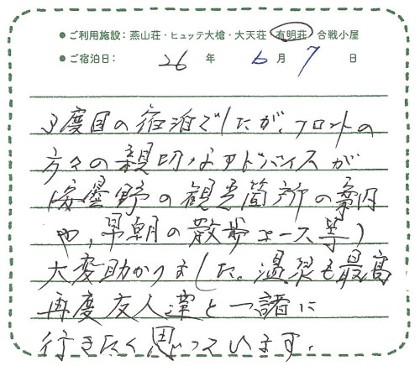 ● ご利用施設：燕山荘・ヒュッテ大槍・大天荘 有明荘 合戦小屋
● ご宿泊日： 26 年 6 月 7 日
3度目の宿泊でしたが、フロントの
方々の親切なアドバイスが
(安曇野の観光箇所の案内
や、早朝の散歩コース等)
大変助かりました。温泉も最高
再度友人達と一諸に
行きたく思っています。